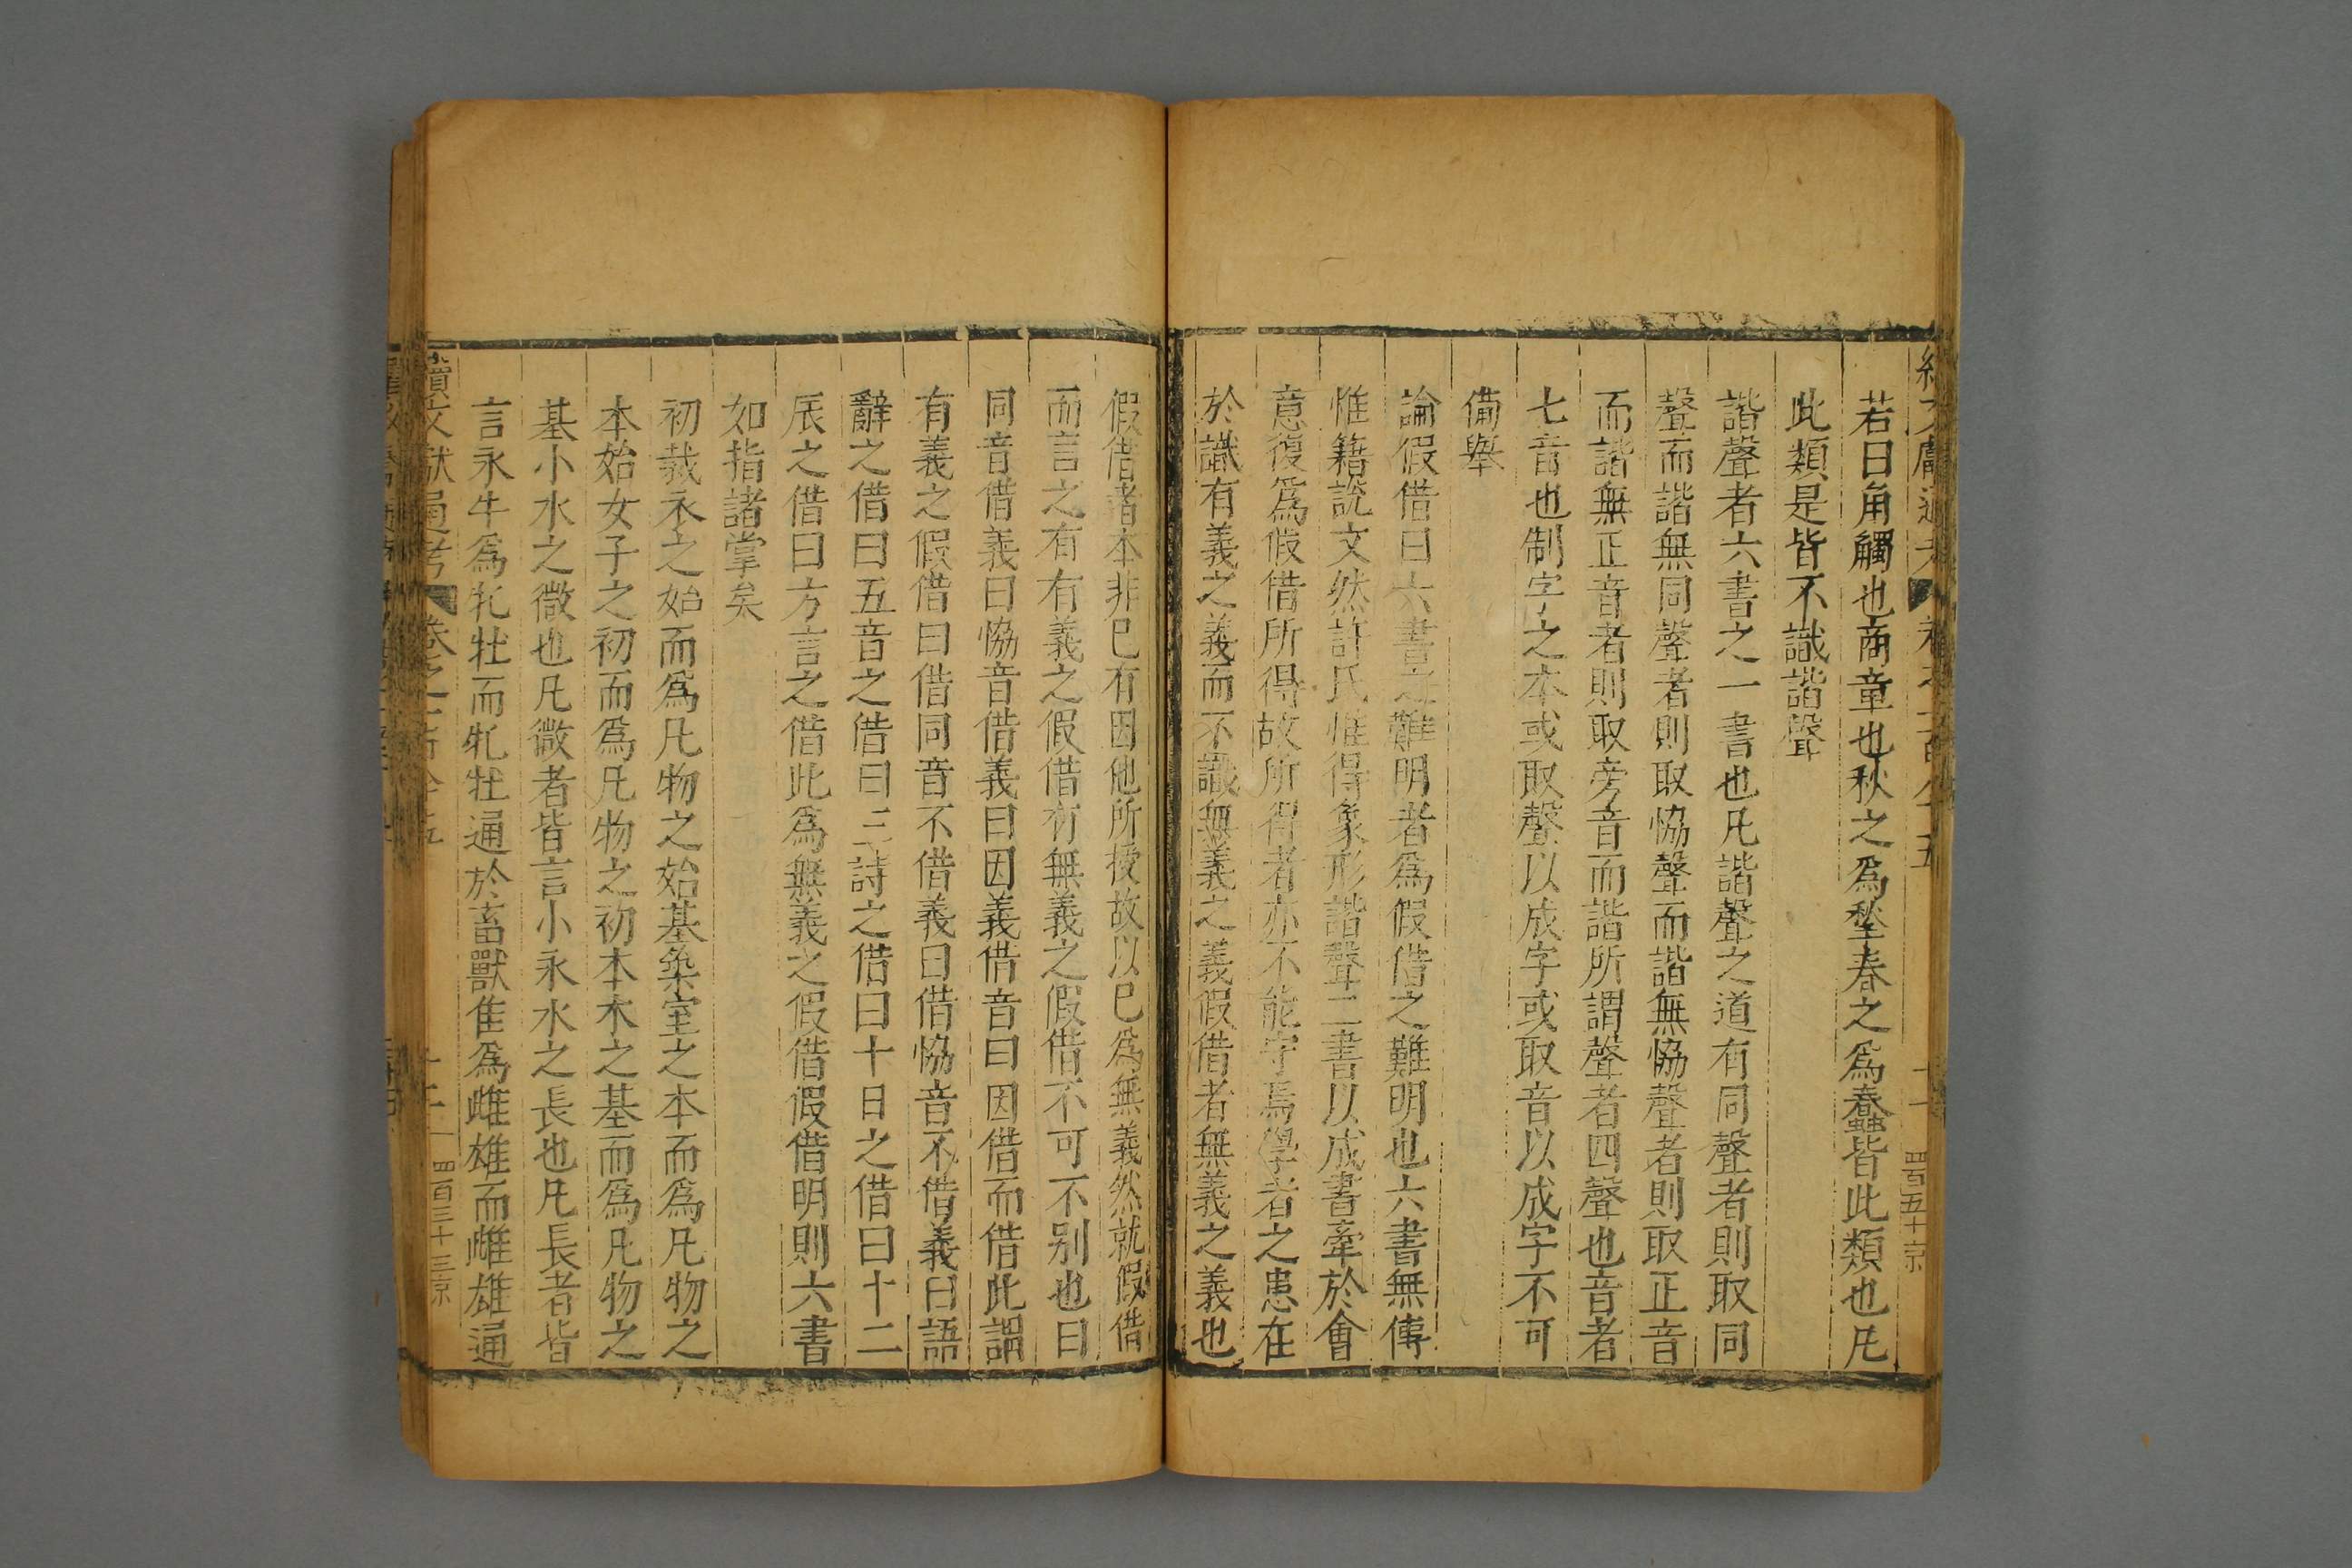 若曰角觸也商章也秋之爲𥡴春之爲蠢皆此類也凡
此類是皆不識諧聲
諧聲者六書之一書也凡諧聲之道有同聲者則取同
聲而諧無同聲者則取恊聲而諧無恊聲者則取正音
而諧無正音者則取旁音而諧所謂聲者四聲也音者
七音也制字之本或取聲以成字或取音以成字不可
備舉
論假借曰六書之難明者爲假借之難明也六書無傳
惟籍說文然許氏惟得象形諧聲二書以成書牽於會
意復爲假借所得故所得者亦不能守焉學者之患在
於識有義之義而不識無義之義假借者無義之義也
假借者本非巳有因他所授故以巳爲無義然就假借
而言之有有義之假借有無義之假借不可不别也曰
同音借義曰恊音借義曰因義借音曰因借而借此謂
有義之假借曰借同音不借義曰借恊音不借義曰語
辭之借曰五音之借曰三詩之借曰十日之借曰十二
辰之借曰方言之借此爲無義之假借假借明則六書
如指諸掌矣
初裁衣之始而爲凡物之始基築室之本而爲凡物之
本始女子之初而爲凡物之初本木之基而爲凡物之
基小水之微也凡微者皆言小永水之長也凡長者皆
言永牛爲牝牡而牝牡通於畜獸隹爲雌雄而雌雄通
續文獻通考 卷之一百八十五
四百三十三 京